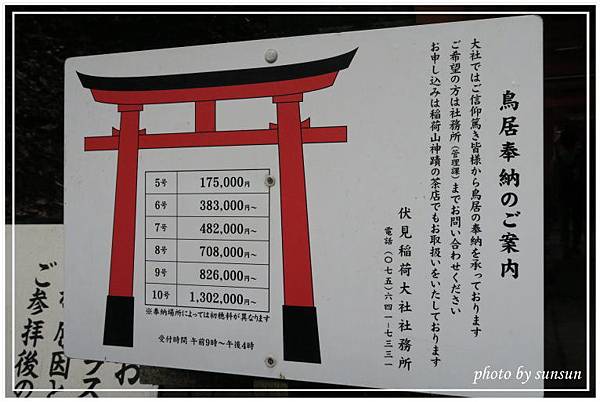 鳥居奉納のご案内
大社ではご信仰篤き皆様から鳥居の奉納を承っております
ご希望の方は社務所（管理課）までお問い合わせください
お申し込みは稲荷山神蹟の茶店でもお取扱いをいたしております
伏見稲荷大社社務所
電話（〇七五）六四一－七三三一
5号 175,000円
6号 383,000円～
7号 482,000円～
8号 708,000円～
9号 826,000円～
10号 1,302,000円～
※奉納場所によっては初穂料が異なります
受付時間 午前9時～午後4時
ご参拝後の
photo by sunsun